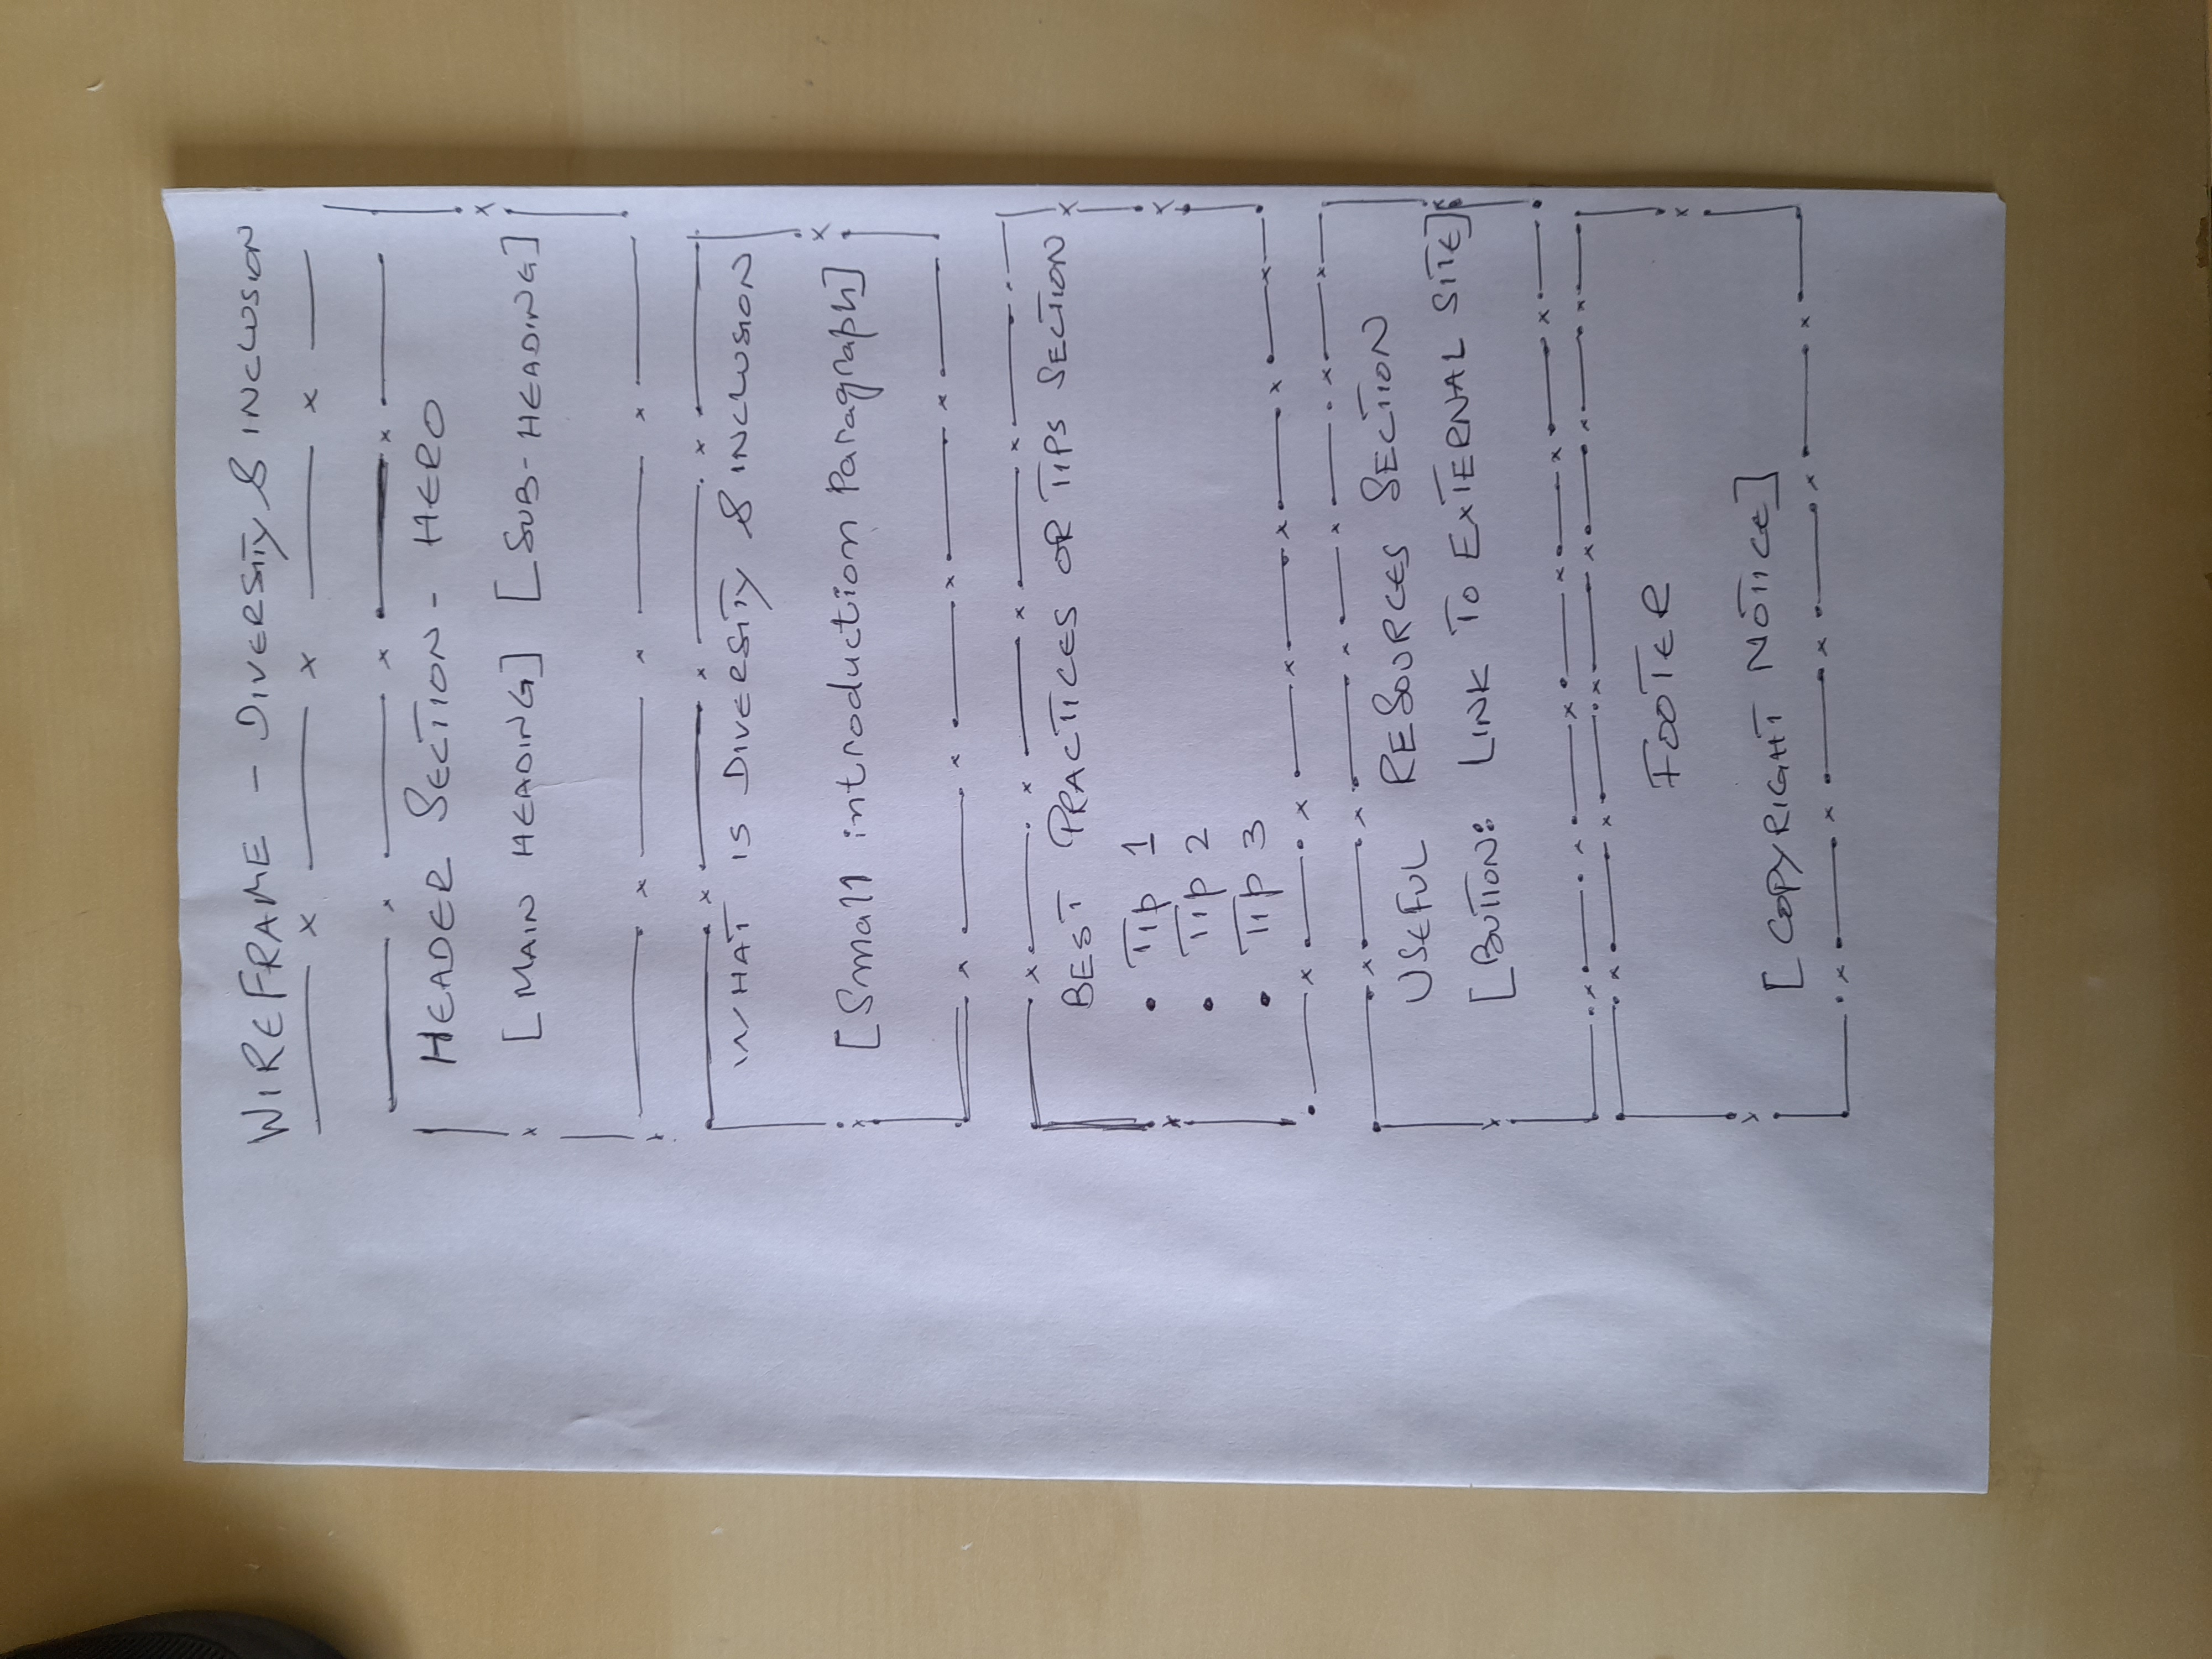 WIREFRAME - DIVERSITY & INCLUSION
HEADER SECTION - HERO
[MAIN HEADING] [SUB-HEADING]
WHAT IS DIVERSITY & INCLUSION
[Small introduction Paragraph]
BEST PRACTICES OR TIPS SECTION
• Tip 1
• Tip 2
• Tip 3
USEFUL RESOURCES SECTION
[BUTTON: LINK TO EXTERNAL SITE]
FOOTER
[COPYRIGHT NOTICE]